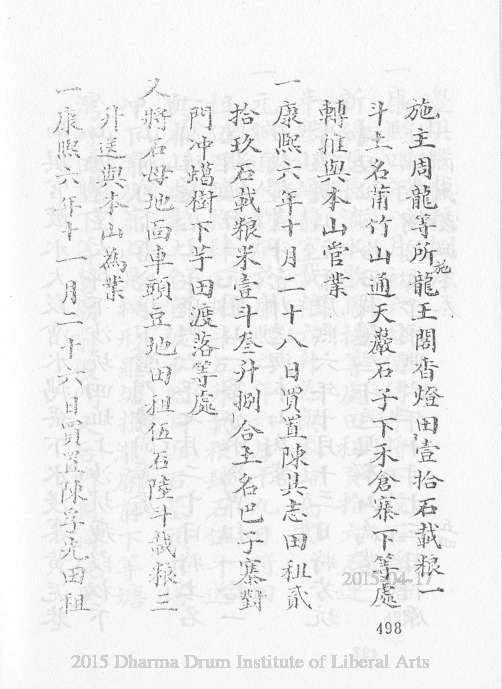 施主周龍等所施龍王閣香燈田壹拾石載粮一
斗土名莆竹山通天嚴石子下禾倉寨下等處
轉推與本山管業
一康熙六年十月二十八日買置陳其志田租貳
拾玖石載粮米壹斗叁升捌合土名巴子寨對
門冲蝎樹下芋田渡落等處
又將石母地面車頭豆地田租伍石陸斗載粮三
升送與本山為業
一康熙六年十一月二十六日買置陳孚先田租
2015-04-17
498
2015 Dharma Drum Institute of Liberal Arts